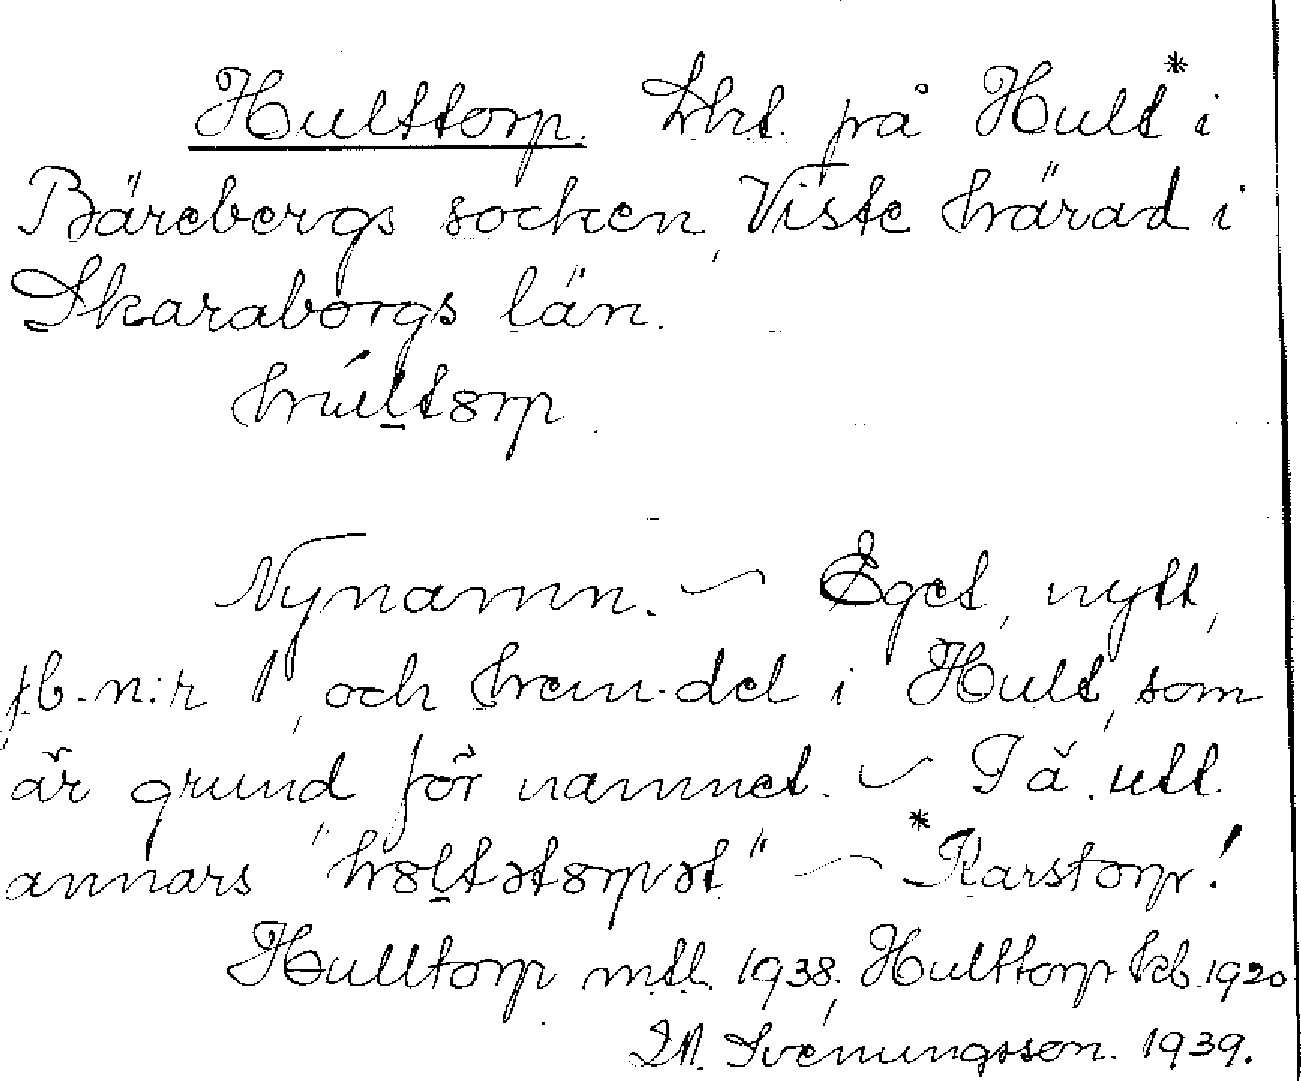 Hulttorp. Lht. på Hult* i
Bärebergs socken, Viste härad i
Skaraborgs län.
húltorp.
Nynamn. – Eget, nytt,
jb.-n:r 1, och hem.del i Hult, som
är grund för namnet. – Få utt.
annars "holtətorpət" – *Karstorp!
Hulltorp mtl. 1938, Hulttorp kb. 1920
Svenungsson. 1939.